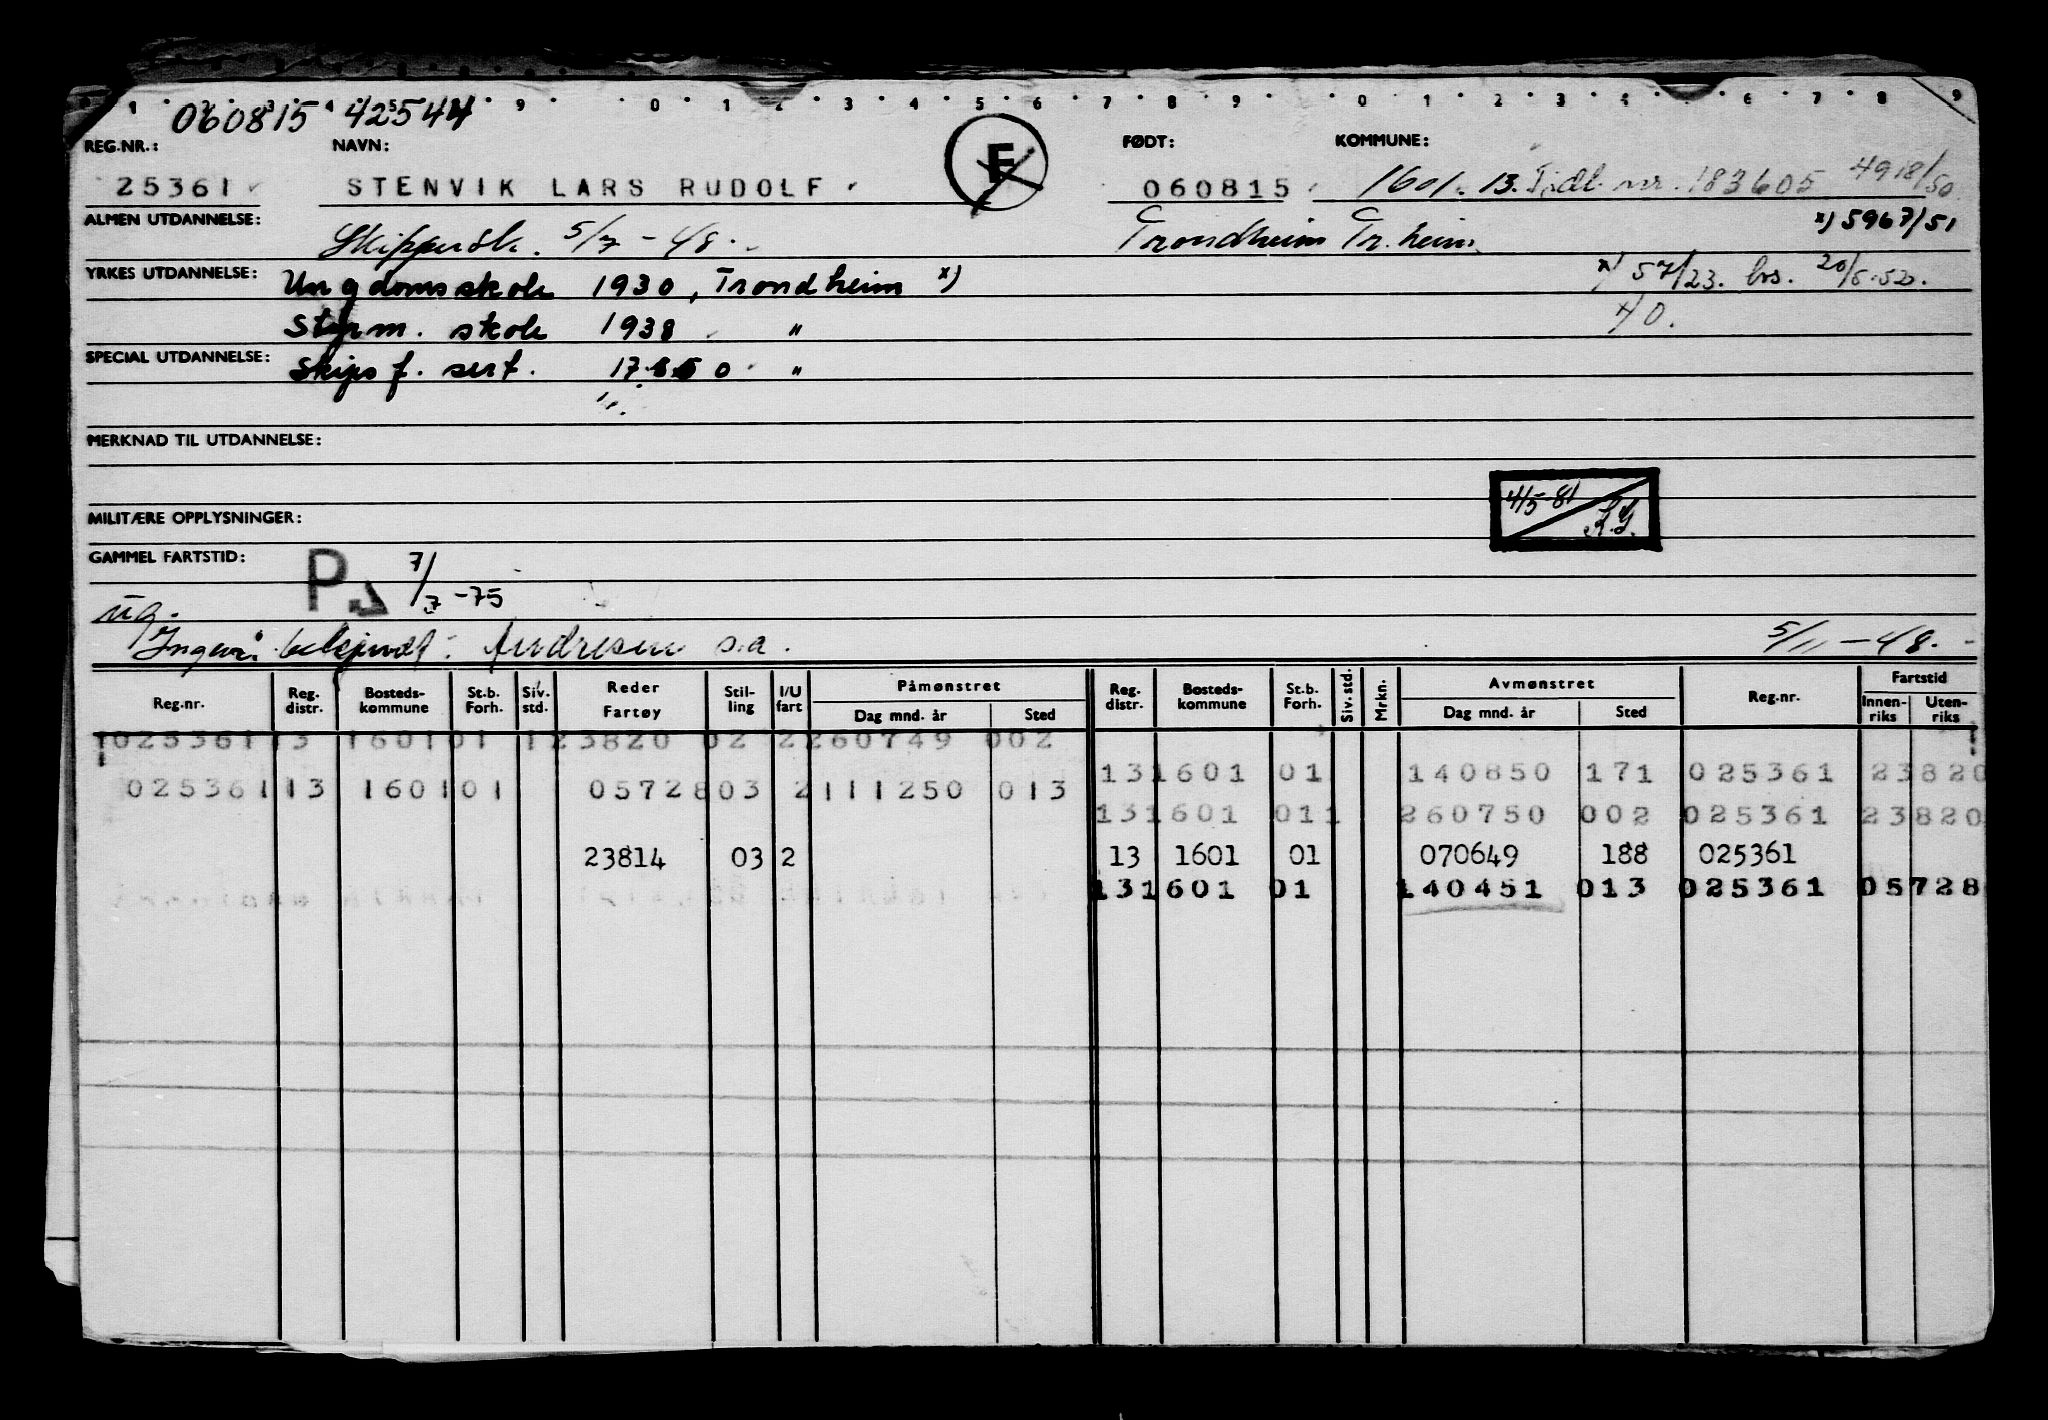 1 2 3 4 5 9 0 1 2 3 4 5 6 7 8 9 0 1 2 3 4 6 7 8 9
060815 42544
REG.NR.: NAVN: F FØDT: KOMMUNE:
25361 STENVIK LARS RUDOLF 060815 1601. 13. Tidl. nr. 183605 4918/50
ALMEN UTDANNELSE: 5/7-48. Trondheim Tr.heim x) 5967/51
YRKES UTDANNELSE: Ungdomsskole 1930, Trondheim x) x) 57/23. 20/5.52.
Styrm. skole 1938 "
SPECIAL UTDANNELSE: Skipsf. sert. "
MERKNAD TIL UTDANNELSE:
4/5-81
MILITÆRE OPPLYSNINGER: K.G.
GAMMEL FARTSTID: P 7/7-75
ug.
Andresen s.a. 5/11-48.
Reg.nr. Reg. distr. Bosteds-kommune St.b. Forh. Siv. std. Reder Fartøy Stil-ling I/U fart Påmønstret Dag mnd. år Sted Reg. distr. Bosteds-kommune St.b. Forh. Siv. std. Mrkn. Avmønstret Dag mnd. år Sted Reg.nr. Fartstid Innen-riks Uten-riks
1025361 13 1601 01 1 23820 02 2 260749 002
131601 01 140850 171 025361 23820
025361 13 1601 01 05728 03 2 111250 013
131601 011 260750 002 025361 23820
23814 03 2 13 1601 01 070649 188 025361
131601 01 140451 013 025361 05728